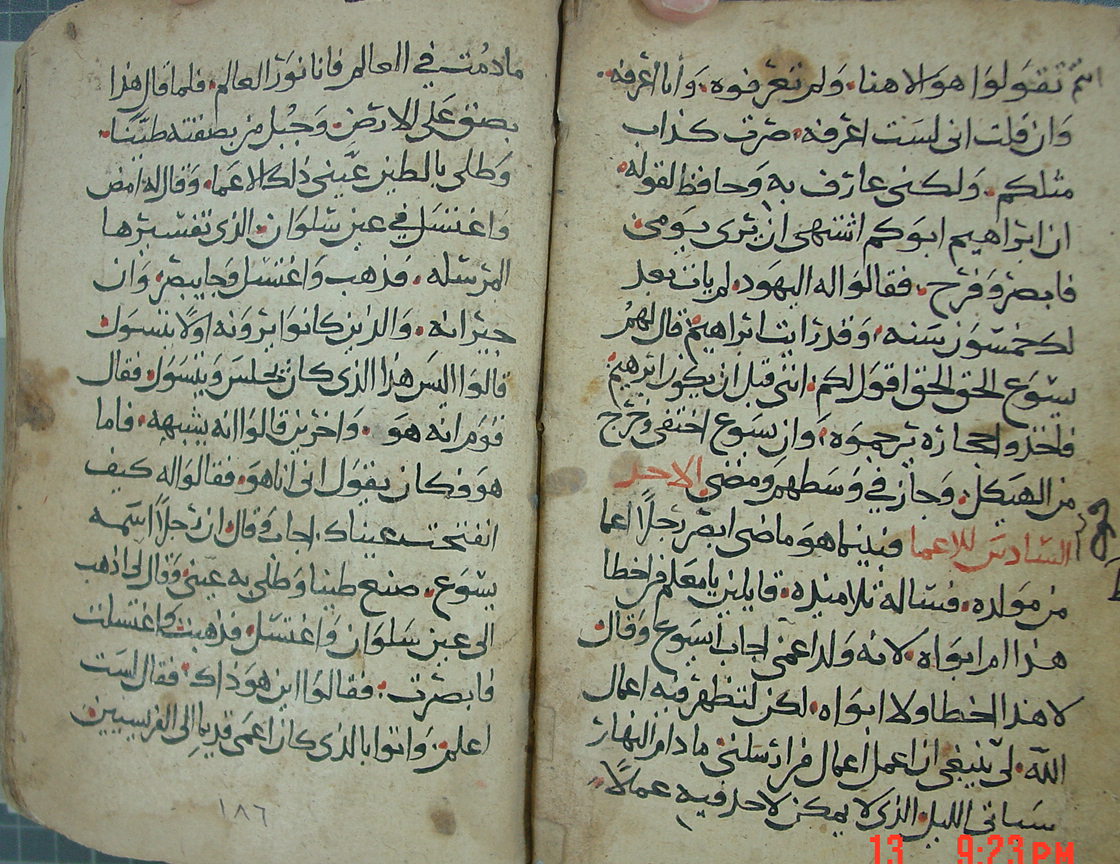 انتم تقولوا هو الاهنا. ولم تعرفوه. وانا اعرفه.
وان قلت انى لست اعرفه. صرت كذاب
مثلكم. ولكنى عارف به وحافظ لقوله.
ان ابراهيم ابوكم اشتهى ان يرى يومى.
فابصر وفرح. فقالوا له اليهود. لم يات بعد
لك خمسون سنه. وقد رايت ابراهيم قال لهم
يسوع الحق الحق اقول لكم. اننى قبل ان يكون ابرهيم.
فاخذوا حجاره ترجموه. وان يسوع اختفى وخرج
من الهيكل. وجاز فى وسطهم ومضى الاحد
السادس للاعما فبينما هو ماضى ابصر رجلًا اعما
من مولده. فساله تلاميذه. قايلين يا معلم من اخطا
هذا ام ابواه. لانه ولد اعمى اجاب ايسوع وقال
لا هذا اخطا ولا ابواه. لكن لتظهر فيه اعمال
الله. لى ينبغى ان اعمل اعمال من ارسلنى ما دام النهار
سياتى الليل. الذى لا يمكن لاحد فيه عملًا.
ما دمت فى العالم فانا نور العالم. فلما قال هذا
بصق على الارض. وجبل من بصقته طينًا.
وطلى بالطين عينى ذلك الاعما. وقال له امض
واغتسل فى عين سلوان. الذى تفسيرها
المرسله. فذهب واغتسل وجا يبصر. وان
جيرانه. والذين كانوا يرونه اولًا يتسول
قالوا اليس هذا الذى كان يجلس ويتسول. فقال
قوم انه هو. واخرين قالوا انه يشبهه. فاما
هو فكان يقول انى انا هو. فقالوا له كيف
انفتحت عيناك. اجاب وقال ان رجلًا اسمه
يسوع. صنع طينا وطلى به عينى وقال لى اذهب
الى عين سلوان واغتسل. فذهبت واغتسلت
فابصرت. فقالوا اين هو ذاك. فقال لست
اعلم. واتوا بالذى كان اعمى قديما الى الفريسيين
١٨٦
13 9:23 PM